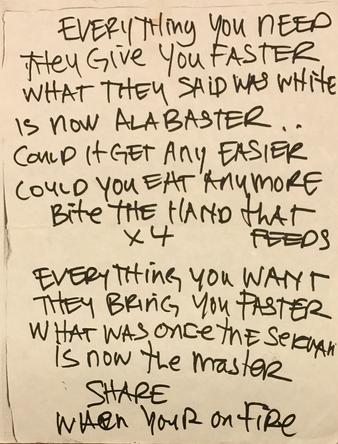 EVERYTHING YOU NEED
THEY GIVE YOU FASTER
WHAT THEY SAID WAS WHITE
IS NOW ALABASTER ..
COULD IT GET ANY EASIER
COULD YOU EAT ANYMORE
BITE THE HAND THAT
X4 FEEDS
EVERYTHING YOU WANT
THEY BRING YOU FASTER
WHAT WAS ONCE THE SERVANT
IS NOW THE MASTER
SHARE
WHEN YOUR ON FIRE